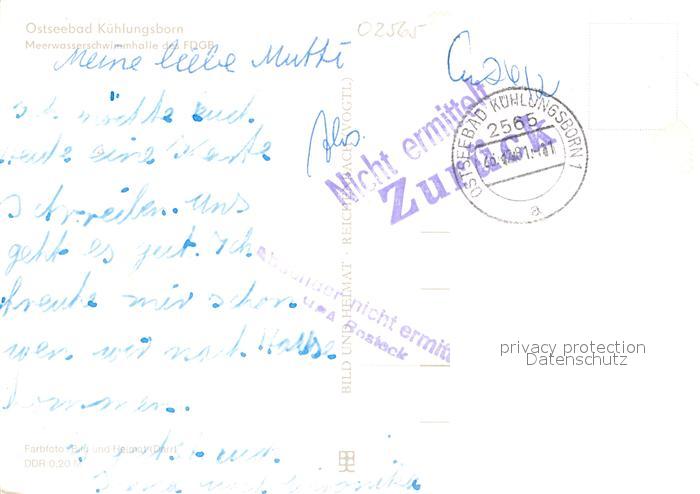 Ostseebad Kühlungsborn
Meerwasserschwimmhalle des FDGB
02565
Meine liebe Mutti
ich möchte euch
heute eine Karte
schreiben. Uns
geht es gut. Ich
freute mir schon
wen wir nach Hause
kommen.
Nicht ermittelt
Zurück
OSTSEEBAD KÜHLUNGSBORN 1
2565
a
Absender nicht ermittelt
Rostock
BILD UND HEIMAT · REICHENBACH (VOGTL)
privacy protection
Datenschutz
Farbfoto: Bild und Heimat (Darr)
DDR 0,20 M
und Veronika